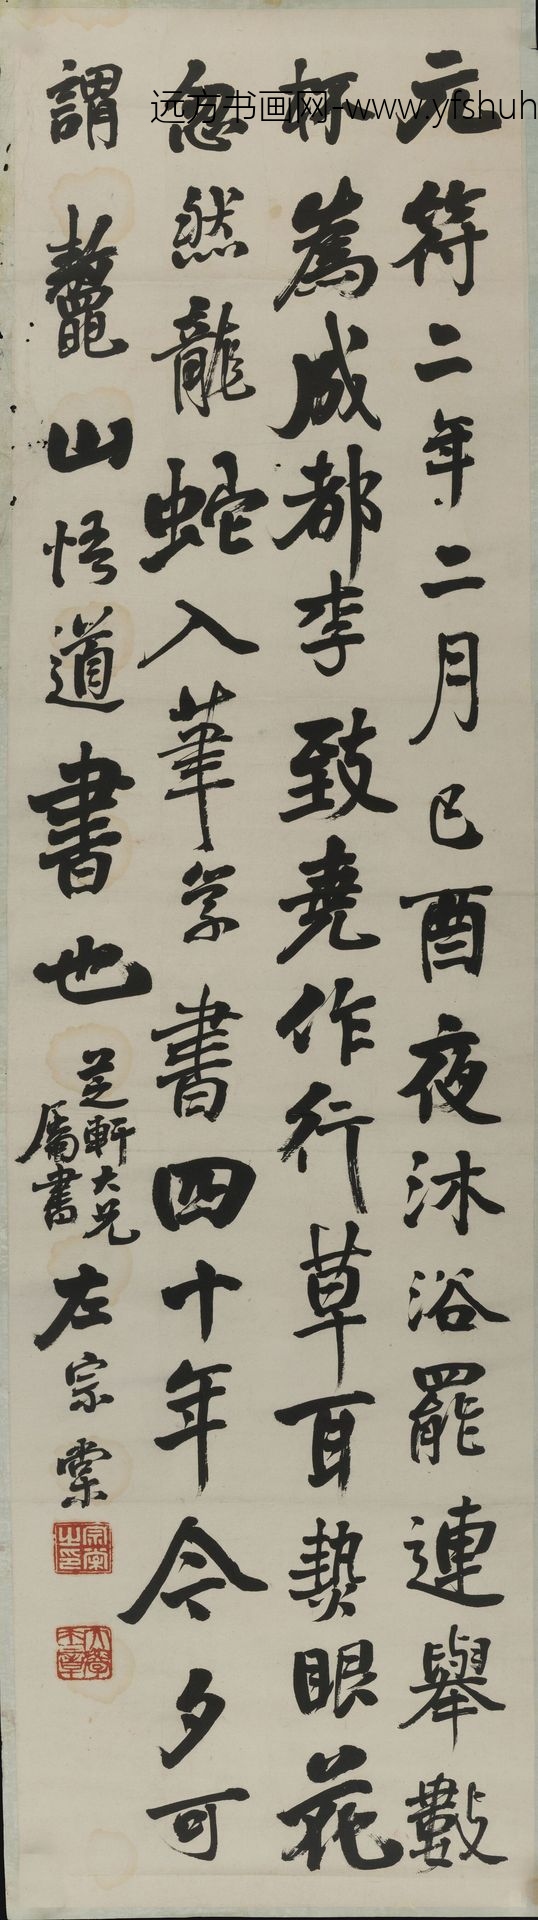 元符二年二月己酉夜沐浴罷連舉數
杯為成都李致堯作行草耳熱眼花
忽然龍蛇入筆學書四十年今夕可
謂鼇山悟道書也
芝軒大兄
屬書
左宗棠
宗棠之印
大學士章
远方书画网-www.yfshuh